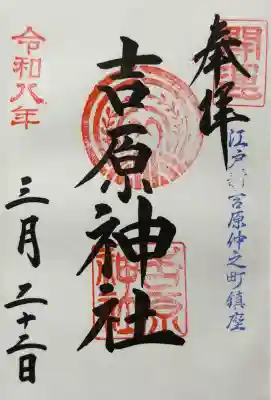 開運
奉拝
江戸新吉原仲之町鎮座
吉原神社
吉原神社
令和八年
三月二十二日